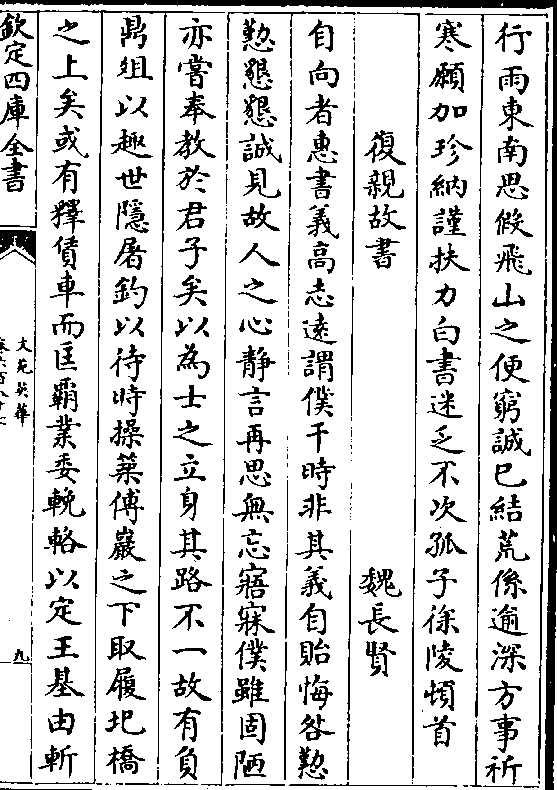 行雨東南思假飛山之便窮誠已結荒係逾深方事祈
寒願加珍納謹扶力白書迷乏不次孤子徐陵頓首
復親故書 魏長賢
自向者惠書義高志逺謂僕干時非其義自貽悔咎懃
懃懇懇誠見故人之心静言再思無忘寤寐僕雖固陋
亦嘗奉教於君子矣以為士之立身其路不一故有負
鼎俎以趣世隱屠釣以待時操築傅巖之下取履圯橋
之上矣或有釋賃車而匡霸業委輓輅以定王基由斬
欽定四庫全書
文苑英華
卷六百八十七
九